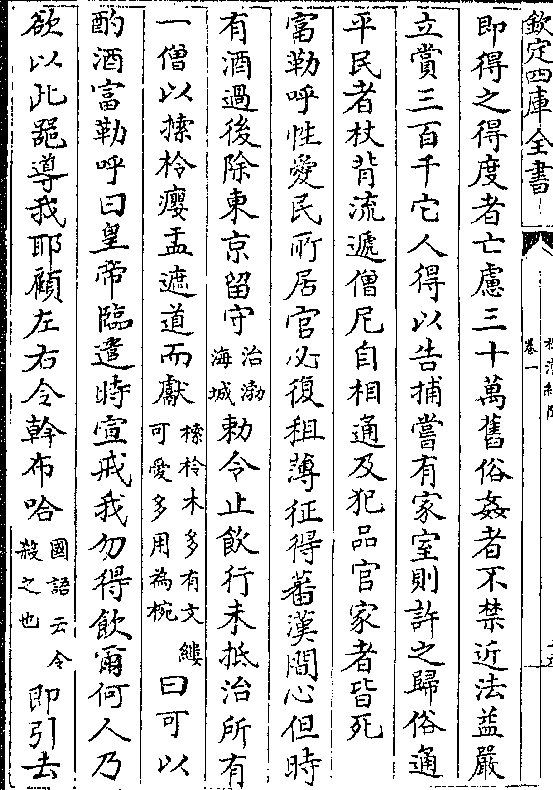 欽定四庫全書
卷一
即得之得度者亡慮三十萬舊俗姦者不禁近法益嚴
立賞三百千它人得以告捕嘗有家室則許之歸俗通
平民者杖背流遞僧尼自相通及犯品官家者皆死
富勒呼性愛民所居官必復租薄征得蕃漢間心但時
有酒過後除東京留守治渤海城勅令止飲行未抵治所有
一僧以㯶柃癭盂遮道而獻㯶柃木多有文縷可愛多用為椀曰可以
酌酒富勒呼曰皇帝臨遣時宣戒我勿得飲爾何人乃
欲以此噐導我耶顧左右令斡布哈國語云令殺之也即引去